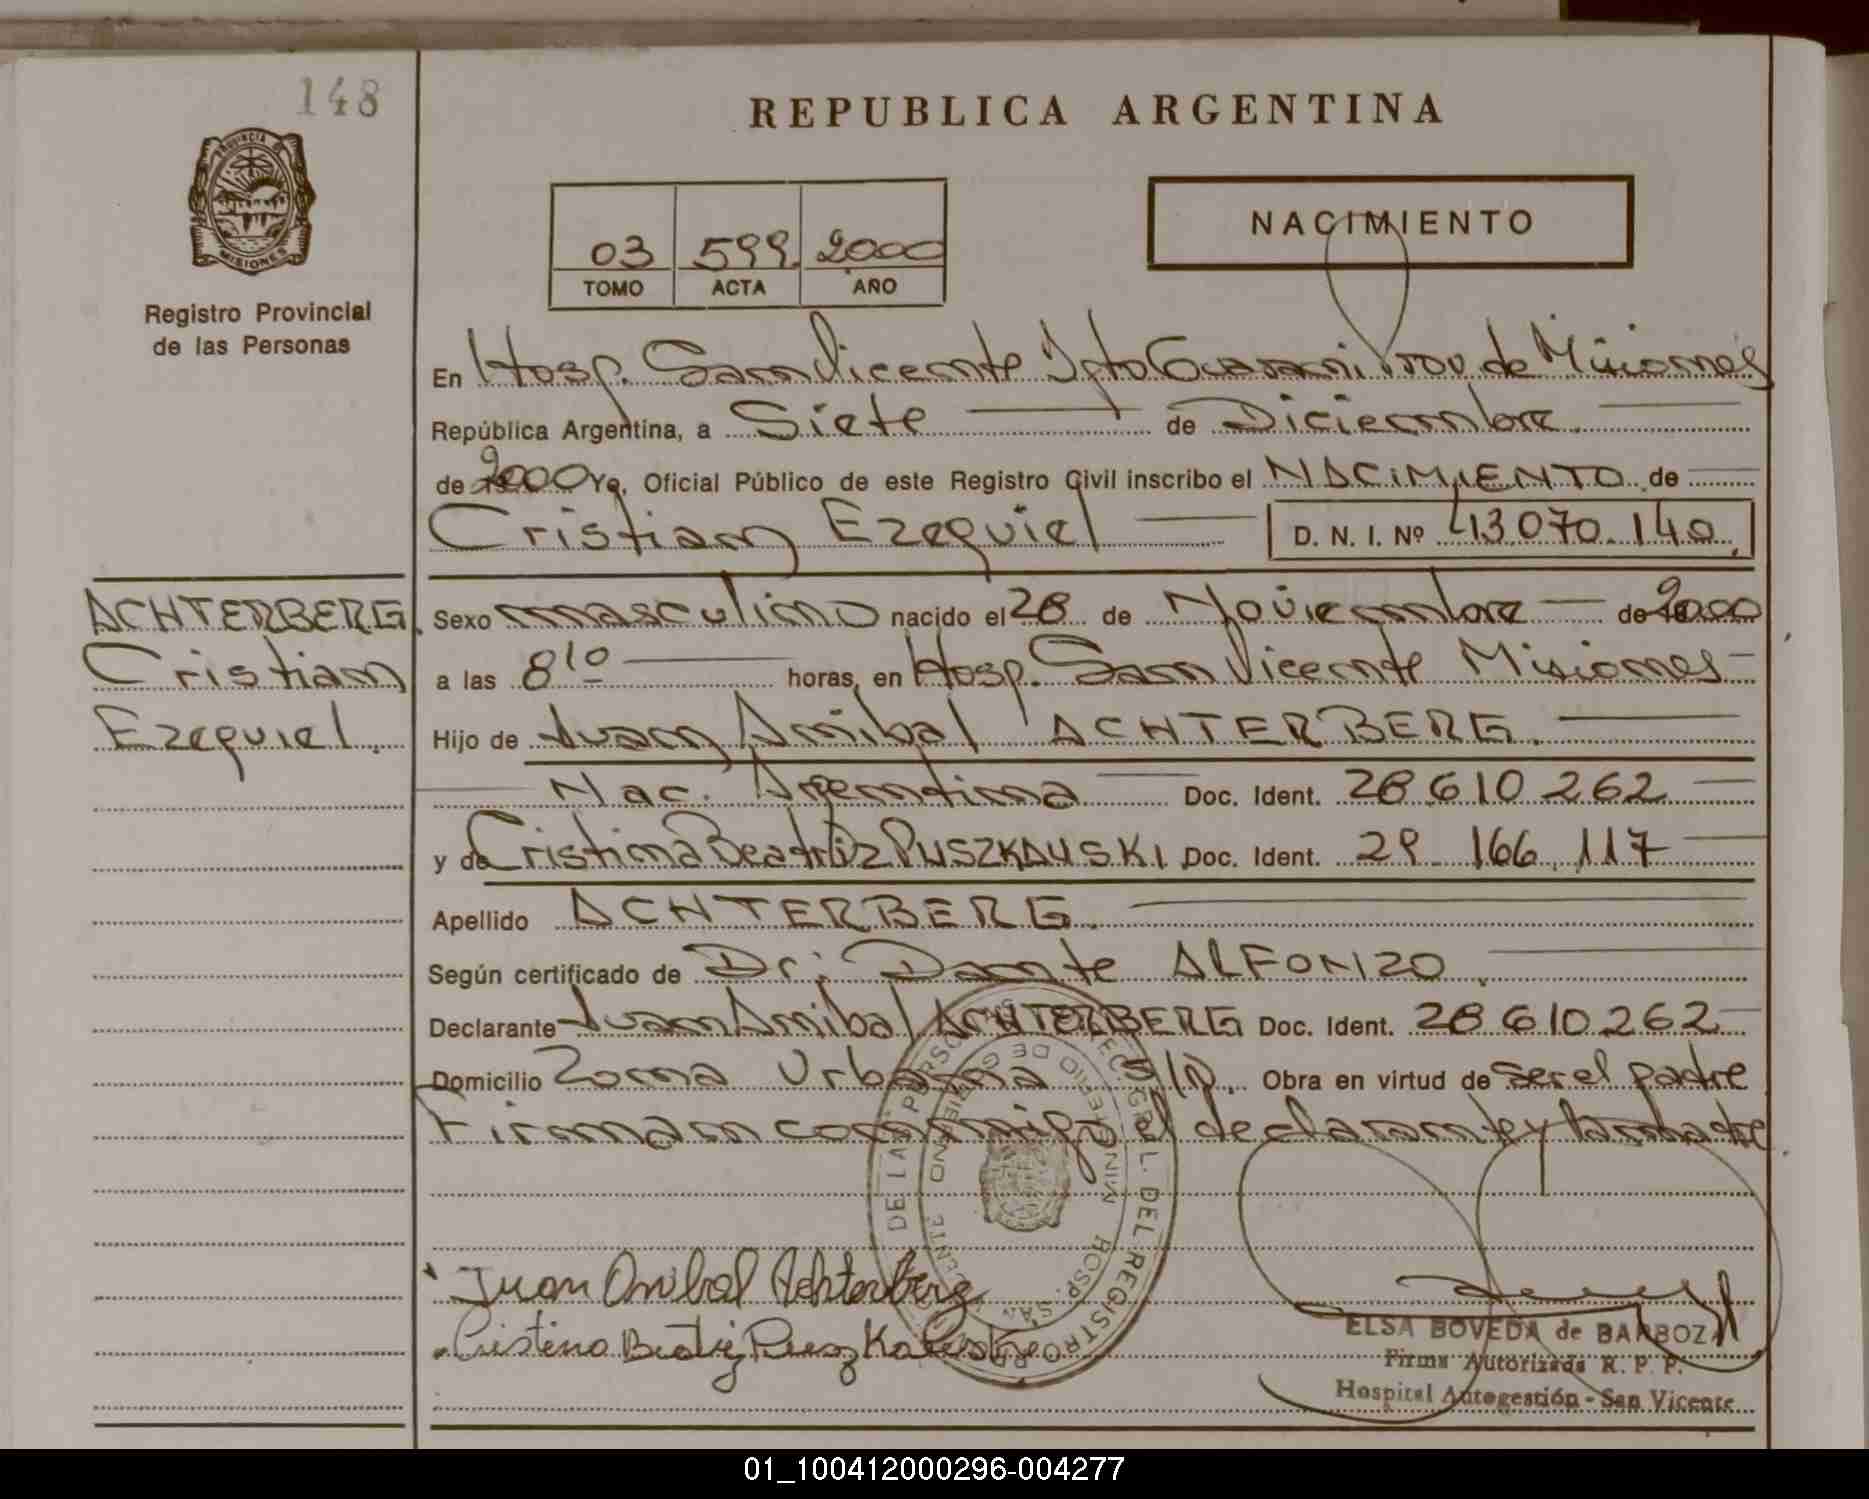 148
REPUBLICA ARGENTINA
PROVINCIA DE
MISIONES
Registro Provincial
de las Personas
03 599 2000
TOMO ACTA AÑO
NACIMIENTO
En Hosp. San Vicente Dpto Guarani Prov. de Misiones
República Argentina, a Siete de Diciembre
de 2000 Yo, Oficial Público de este Registro Civil inscribo el NACIMIENTO de
Cristian Ezequiel D. N. I. Nº 43.070.140
ACHTERBERG
Cristian
Ezequiel
Sexo masculino nacido el 28 de Noviembre de 2000
a las 8 10 horas, en Hosp. San Vicente Misiones
Hijo de Juan Anibal ACHTERBERG
Nac. Argentina Doc. Ident. 28 610 262
y de Cristina Beatriz PUSZKAUSKI Doc. Ident. 29 166 117
Apellido ACHTERBERG
Según certificado de Dr: Dante ALFONZO
Declarante Juan Anibal ACHTERBERG Doc. Ident. 28 610 262
Domicilio Zona Urbana S/N. Obra en virtud de ser el padre
Firman conmigo el declarante y la madre
Juan Anibal Achterberg
Cristina Beatriz
ELSA BOVEDA de BARBOZA
Firma Autorizada R. P. P.
Hospital Autogestión - San Vicente
01_100412000296-004277